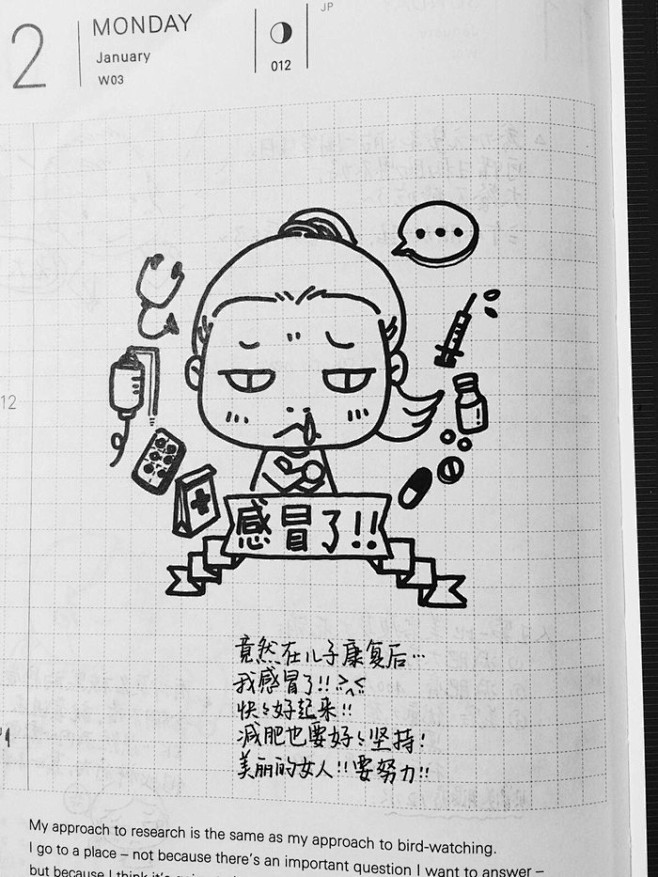 2
MONDAY
January
W03
012
JP
12
感冒了!!
竟然在儿子康复后…
我感冒了!!
快々好起来!!
减肥也要好々坚持!
美丽的女人!!要努力!!
My approach to research is the same as my approach to bird-watching.
I go to a place – not because there's an important question I want to answer –